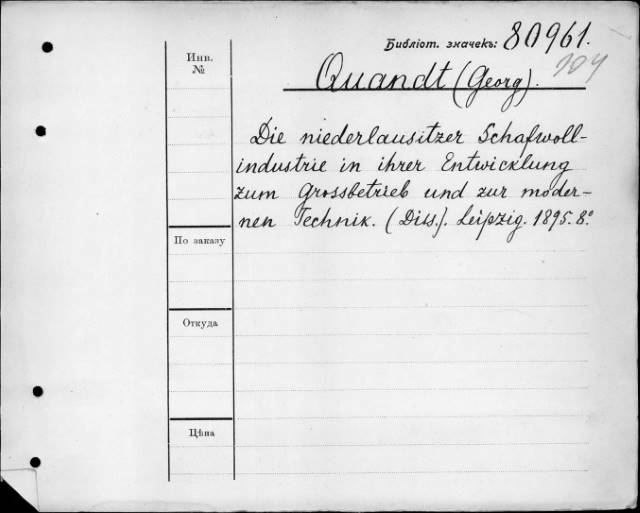 Библіот. значекъ: 80961.
104
Инв.
№
Quandt (Georg).
Die niederlausitzer Schafwoll-
industrie in ihrer Entwicklung
zum Grossbetrieb und zur moder-
nen Technik. (Diss.). Leipzig. 1895. 8°.
По заказу
Откуда
Цѣна